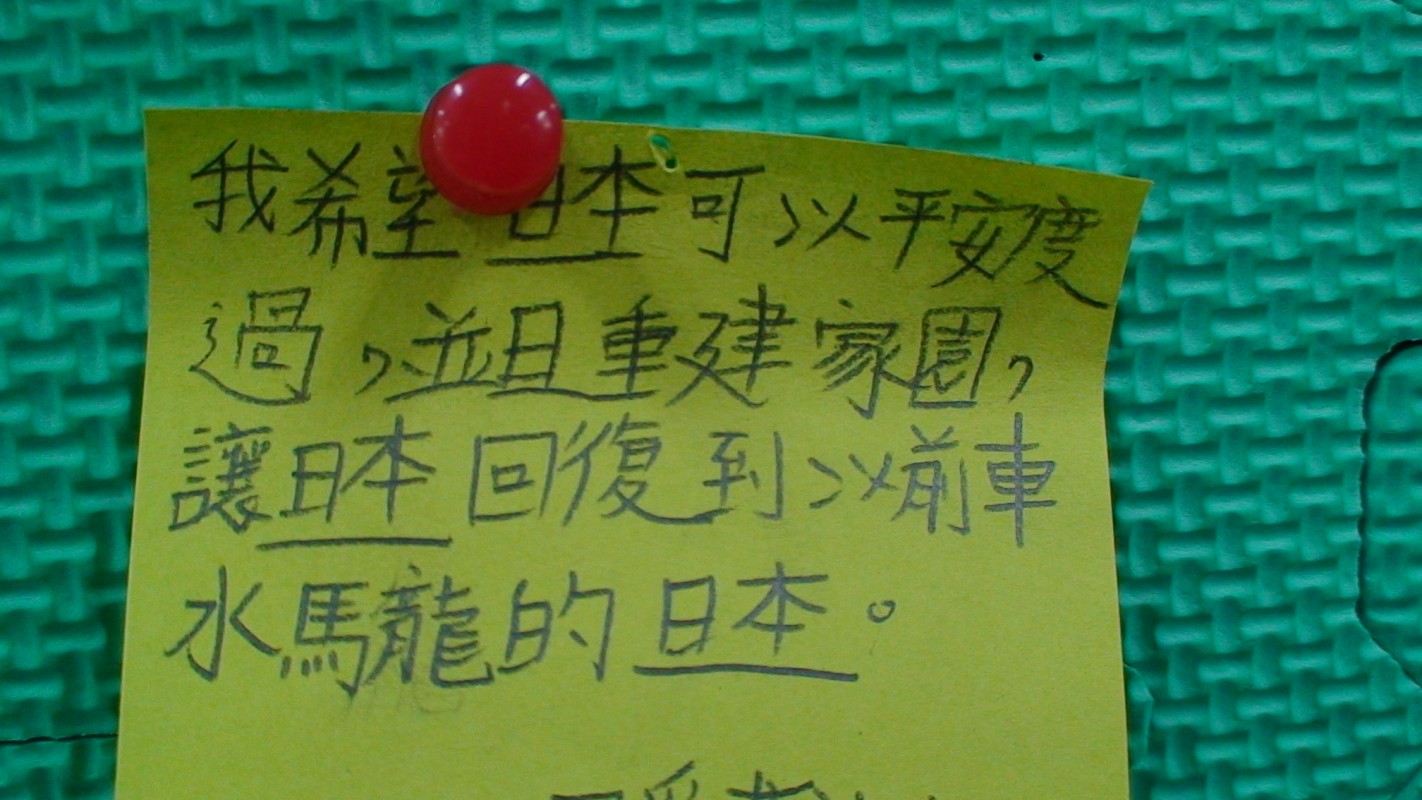 我希望日本可以平安度
過，並且重建家園，
讓日本回復到以前車
水馬龍的日本。